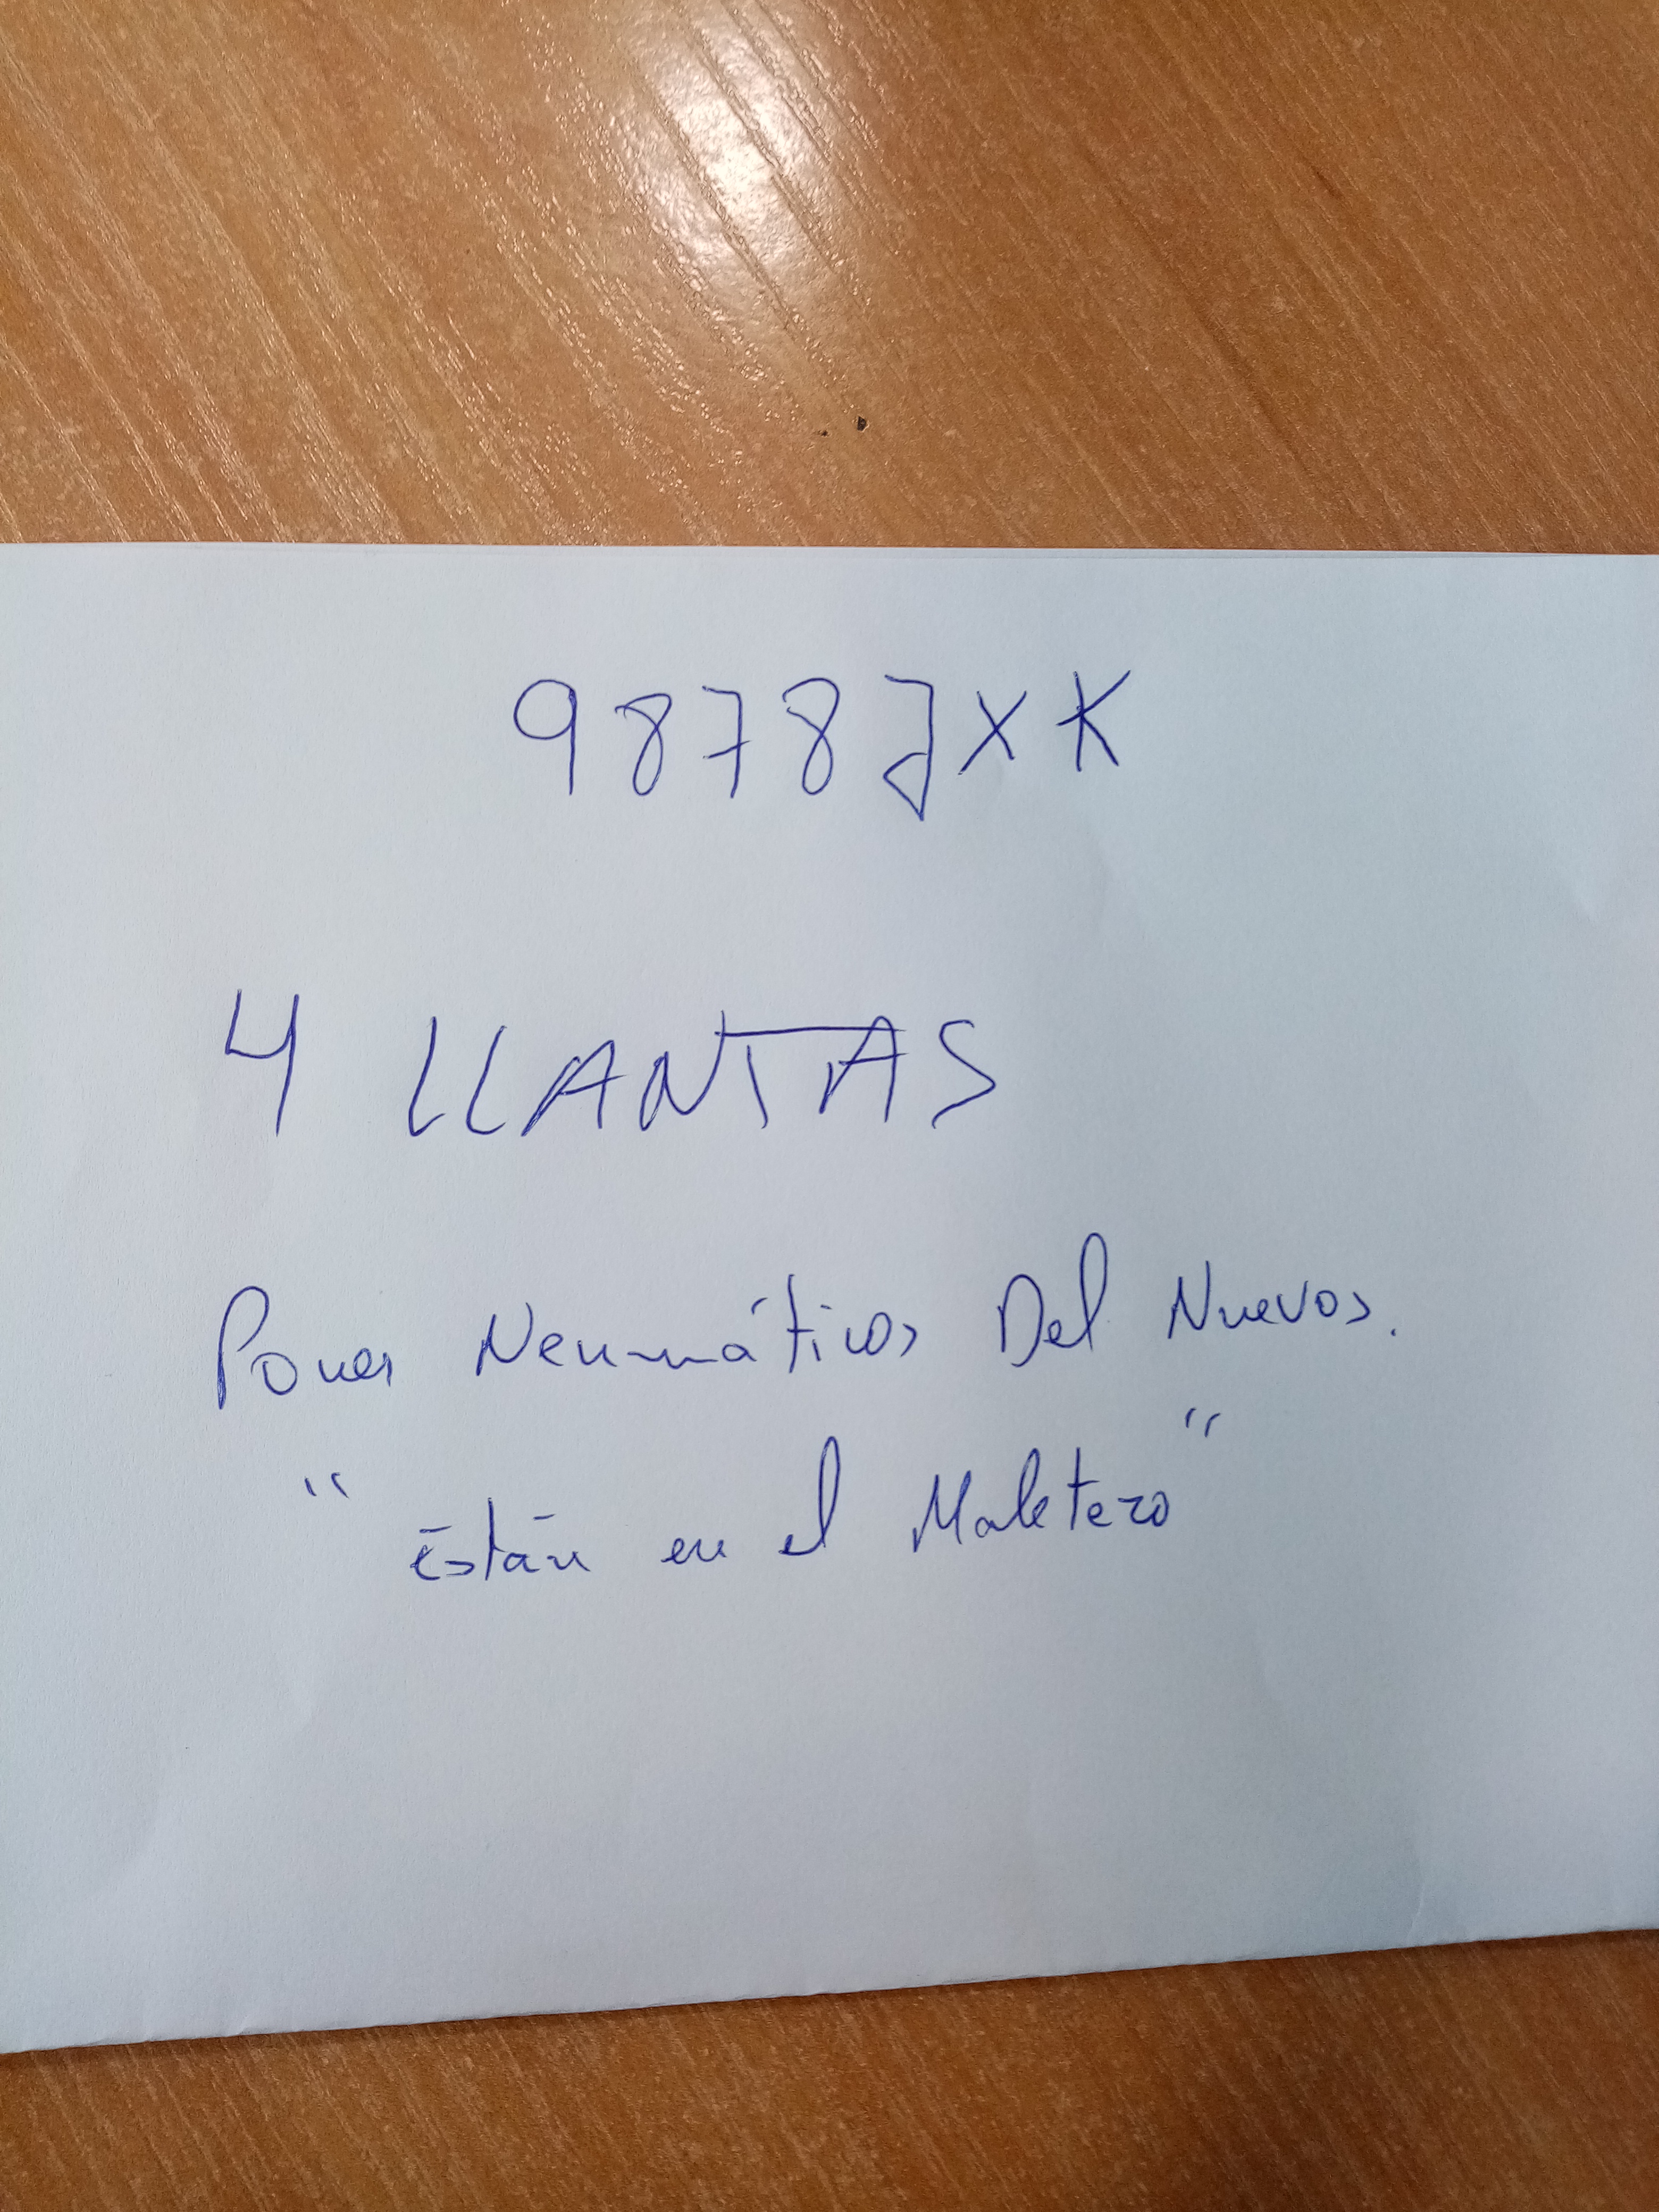 9878JXK
4 LLANTAS
Poner Neumáticos Del Nuevos.
"Están en el Maletero"